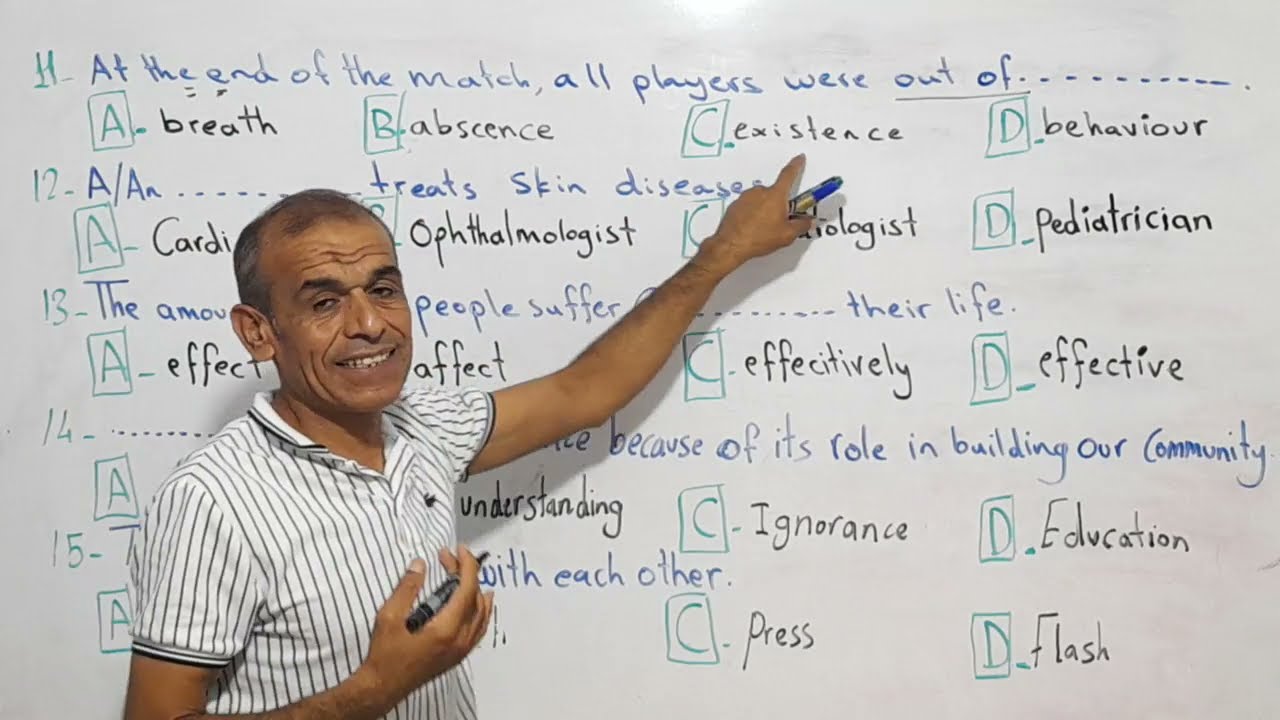 11- At the end of the match, all players were out of ............ .
A- breath B- abscence C- existence D- behaviour
12- A/An ............ treats skin diseases
A- Cardi B- Ophthalmologist C ologist D- pediatrician
13- The people suffer ............ their life.
A- effect affect C- effecitively D- effective
14- ........ because of its role in building our Community.
A understanding C- Ignorance D- Education
15- with each other.
A C- press D- flash